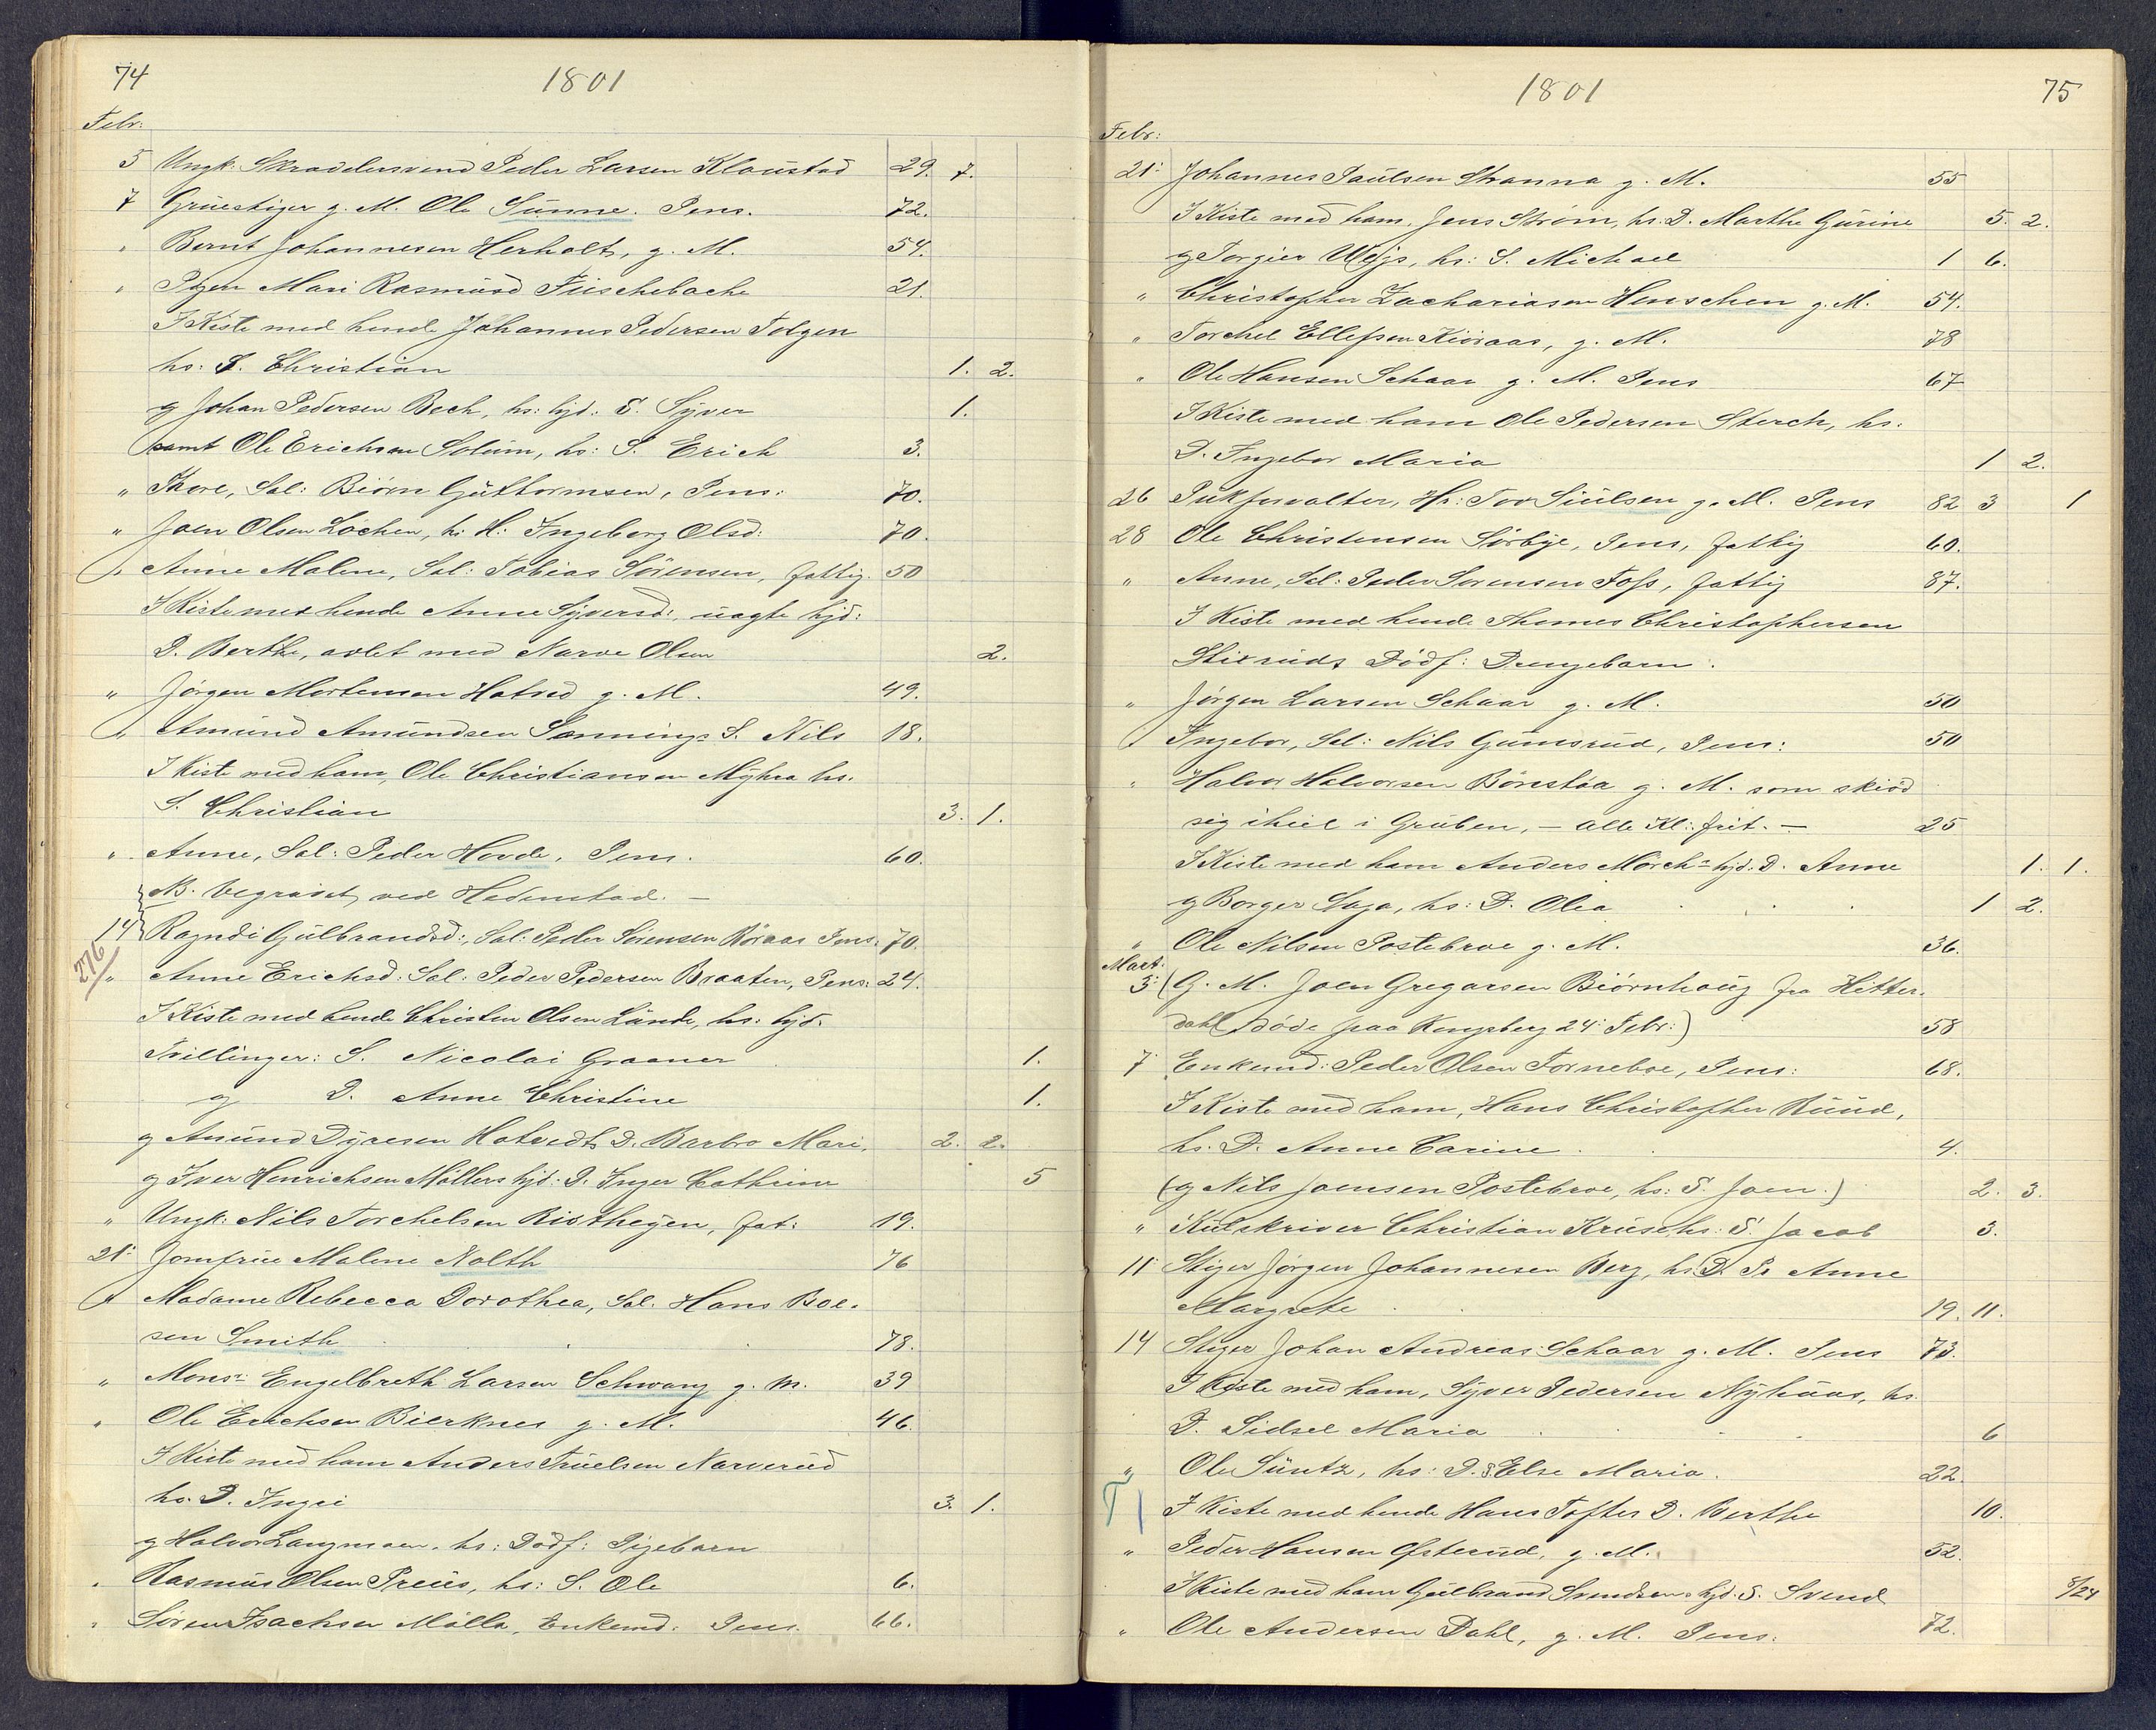 74
1801
Febr:
5 Ungk: Skradersvend Peder Larsen Klaustad 29. 7.
7 Gruestiger g. M. Ole Sunne. Pens. 72.
" Bernt Johannesen Herholt, g. M. 54.
" Pigen Mari Rasmusd 21.
I Kiste med hende Johannes Pedersen Tolgen
hs: S. Christian 1. 2.
g Johan Pedersen Bech, hs: hjd: S. Syver 1.
samt Ole Erichsen Solum, hs: S. Erich 3.
" Thore, Sal: Biørn Guttormsen, Pens: 70.
" Joen Olsen Løchen, hs: H: Ingeborg Olsd: 70.
" Anne Malene, Sal: Tobias Sørensen, fattig. 50
I Kiste med hende Anne Syversd:, uægte hjd:
D. Berthe, avlet med Narve Olsen 2.
" Jørgen Mortensen Hatved g. M. 49.
" Amund Amundsen Sannings S. Nils 18.
I Kiste med ham, Ole Christiansen Myhra hs.
S. Christian 3. 1.
" Anne, Sal: Peder Hovde, Pens. 60.
NB. begravet ved Hedenstad. —
14 Ragndi Gulbrandsd:, Sal: Peder Sørensen Røraas Pens. 70.
276
" Anne Erichsd: Sal: Peder Pedersen Braaten, Pens: 24.
I Kiste med hende Christen Olsen Lunde, hs: hjd:
Tvillinger: S. Nicolai Graaner 1.
g D. Anne Christine 1.
g Amund Dyresen Hatvedts D. Barbro Mari. 2. 2.
g Iver Henrichsen Møllers hjd: D. Inger Cathrine 5
" Ungk: Nils Torchelsen Bistheyen, fat: 19.
21: Jomfrue Malene Nolth 76
" Madame Rebecca Dorothea, Sal. Hans Boe-
sen Smith 78.
" Monsr: Engelbreth Larsen Schwang g. M. 39
" Ole Erichsen Bierknes g. M. 46.
I Kiste med ham Anders Truelsen Narverud
hs. D. Ingri 3. 1.
g Halvor Langmoen. hs: Dødf: Pigebarn
" Rasmus Olsen Preus, hs: S. Ole 6.
" Søren Isachsen Mølla, Enkemd: Pens. 66.
1801
75
Febr:
21: Johannes Paulsen Stranna g. M. 55
I Kiste med ham, Jens Strøm, hs: D. Marthe Gurine 5. 2.
g Torgier hs: S. Michael 1 6.
" Christopher Zachariasen Henschen g. M. 54.
" Torchel Ellefsen Kioraas, g. M. 78
" Ole Hansen Schaar g. M. Pens 67
I Kiste med ham Ole Pedersen Sterch, hs:
D. Ingebor Maria 1 2.
26 Pukforvalter, Hr: Tov Siulsen g. M. Pens 82 3 1
28 Ole Christensen Sørbye, Pens, fattig 60.
" Anne, Sal: Peder Sørensen Foss, fattig 87.
I Kiste med hende Thomes Christophersen
Stixruds Dødf: Drengebarn.
" Jørgen Larsen Schaar g. M. 50
" Ingebor, Sal: Nils Gumsrud, Pens: 50
" Halvor Halvorsen Børestøa g. M. som skiød
sig ihiel i Gruben, — alle Kl: frit. — 25
I Kiste med ham Anders Mørchs hjd: D. Anne 1. 1.
g Borger Saga, hs: D. Olea 1 2.
" Ole Nilsen Postebroe g. M. 36.
Mart:
3: (G. M. Joen Gregarsen Biørnhaug fra Hitter-
dahl døde paa Kongsberg 24: Febr:) 58
7 Enkemd: Peder Olsen Torneboe, Pens: 68.
I Kiste med ham, Hans Christopher Ruud,
hs. D. Anne Carine 4.
(g Nils Joensen Postebroe, hs: S. Joen.) 2. 3.
" Kulskriver Christian Kruse, hs: S: Jacob 3.
11: Stiger Jørgen Johannesen Berg, hs: D. Pe Anne
Margrete 19. 11.
14 Stiger Johan Andreas Schaar g. M. Pens 73.
I Kiste med ham, Syver Pedersen Nyhuus, hs.
D. Sidsel Maria 6
" Ole Suntz, hs: D. Else Maria. 22.
I Kiste med hende Hans Toftes D. Berthe 10.
" Peder Hansen Ofsterud, g. M. 52.
I Kiste med ham Gulbrand Svendsens hjd: S. Svend 8/24
" Ole Andersen Dahl, g. M. Pens: 72.